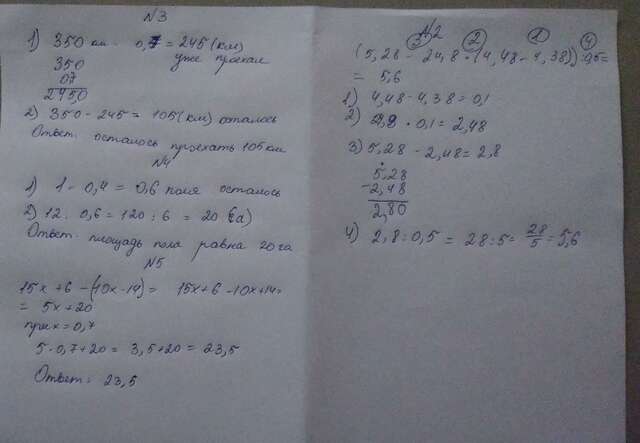 N3
1) 350 км · 0,7 = 245 (км)
уже проехали
350
07
2450
2) 350 - 245 = 105 (км) осталось
Ответ: осталось проехать 105 км
N4
1) 1 - 0,4 = 0,6 поля осталось
2) 12 : 0,6 = 120 : 6 = 20 (га)
Ответ: площадь поля равна 20 га
N5
15x + 6 - (10x - 14) = 15x + 6 - 10x + 14 =
= 5x + 20
при x = 0,7
5 · 0,7 + 20 = 3,5 + 20 = 23,5
Ответ: 23,5
N2
3 2 1 4
(5,28 - 24,8 · (4,48 - 4,38)) : 0,5 =
= 5,6
1) 4,48 - 4,38 = 0,1
2) · 0,1 = 2,48
3) 5,28 - 2,48 = 2,8
5,28
- 2,48
2,80
4) 2,8 : 0,5 = 28 : 5 = 28/5 = 5,6